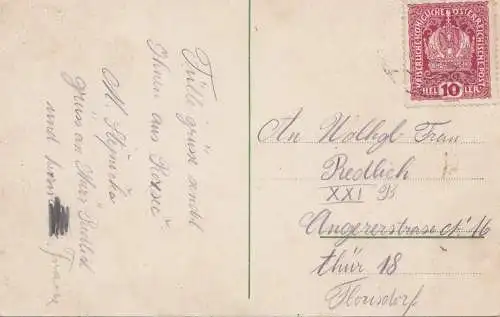 Fülle grüsse sendet
Ihnen aus
M.
gruss an Herr Redlich
und
Franz
KAISERLICHE KÖNIGLICHE ÖSTERREICHISCHE POST
HELLER 10
An Wolhgl Frau
Redlich
XXI B
Angererstrasse No 16
thür 18
Florisdorf